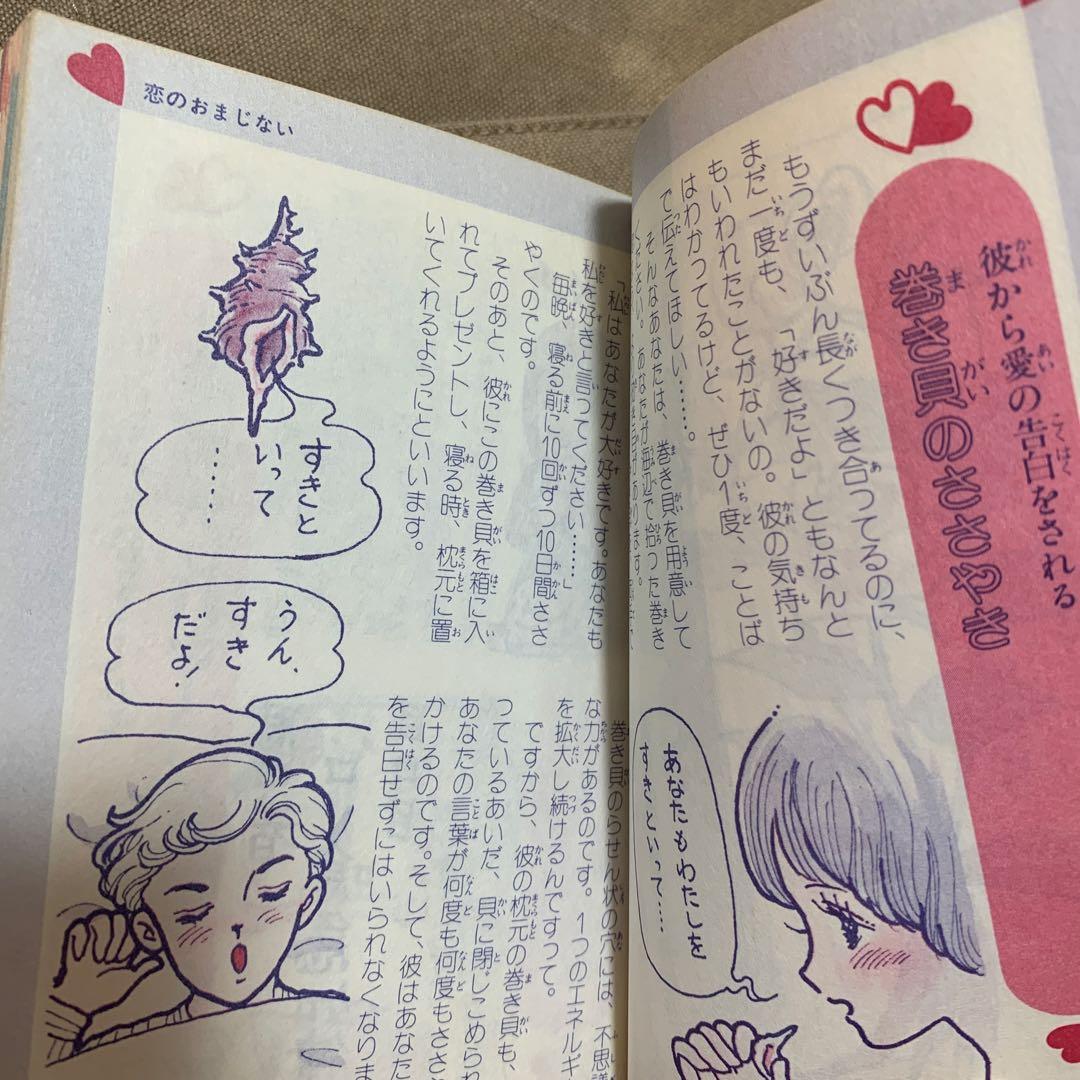 彼から愛の告白をされる
巻き貝のささやき
もうずいぶん長くつき合ってるのに、
まだ一度も、「好きだよ」ともなんと
もいわれたことがないの。彼の気持ち
はわかってるけど、ぜひ1度、ことば
で伝えてほしい……。
そんなあなたは、巻き貝を用意して
ください。あなたが海辺で拾った巻き
あなたもわたしを
すきといって……
恋のおまじない
「私はあなたが大好きです。あなたも
私を好きと言ってください……」
毎晩、寝る前に10回ずつ10日間ささ
やくのです。
そのあと、彼にこの巻き貝を箱に入
れてプレゼントし、寝る時、枕元に置
いてくれるようにといいます。
すきと
いって
……
うん、
すき
だよ!
巻き貝のらせん状の穴には、不思議
な力があるのです。1つのエネルギ
を拡大し続けるんですって。
ですから、彼の枕元の巻き貝も、
っているあいだ、貝に閉じこめられ
あなたの言葉が何度も何度もささ
かけるのです。そして、彼はあなた
を告白せずにはいられなくなりま